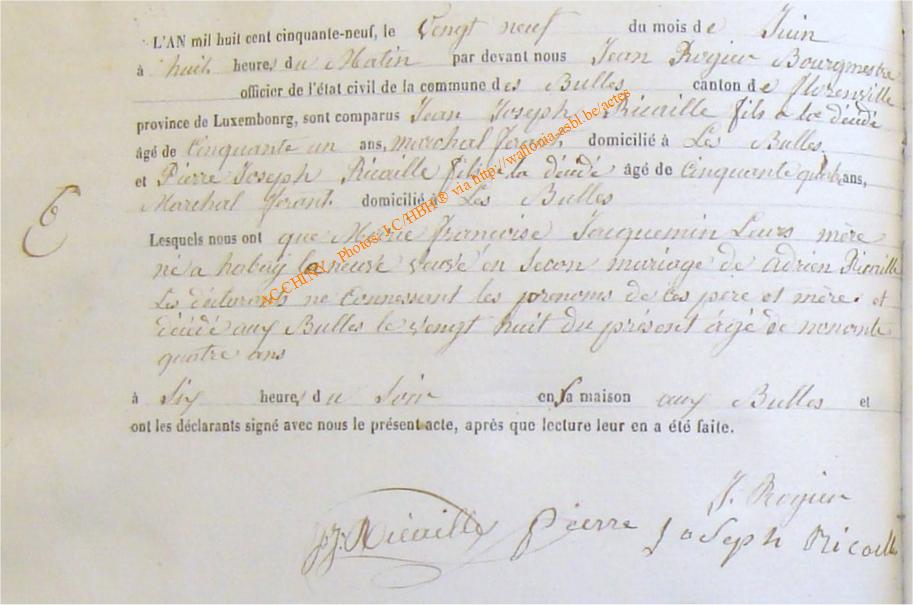 L'AN mil huit cent cinquante-neuf, le Vengt neuf du mois de Juin
à huit heures du Matin par devant nous Jean Rogier Bourgmestre
officier de l'état civil de la commune des Bulles canton de florenville
province de Luxembourg, sont comparus Jean Joseph Ricaille fils a la dédé
âgé de Cinquante un ans, marchal ferant, domicilié à Les Bulles
et Pierre Joseph Ricaille fils a la dédé âgé de Cinquante quatre ans,
Marchal ferant domicilié à Les Bulles
Lesquels nous ont que Marie Francoise Jacquemin Leurs mère
né a habay la neuve veuve en Secon mariage de adrien Ricaille
Les déclarants ne Connessant les prenoms de Ces père et mère et
dédé aux Bulles le vengt huit du présent âgé de nonante
quatre ans
à Six heures du Soir en sa maison aux Bulles et
ont les déclarants signé avec nous le présent acte, après que lecture leur en a été faite.
J. Rogier
J. J. Ricaille Pierre Joseph Ricaille
AC CHINY - Photos: LC/HBH® via http://wallonia-asbl.be/actes